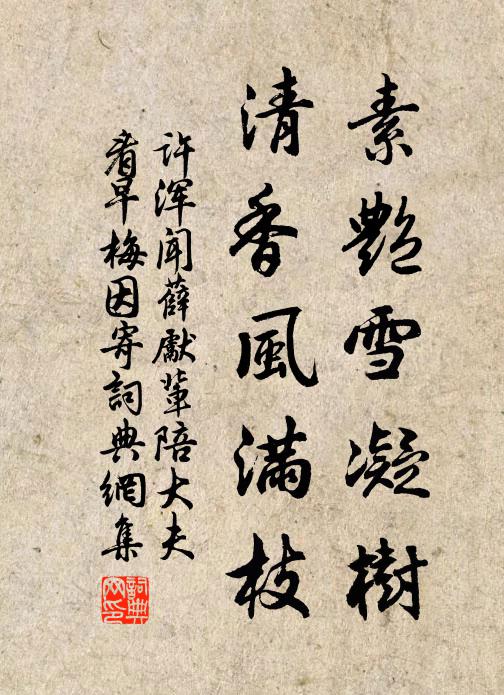 素艷雪凝樹
清香風滿枝
许渾聞薛獻輩陪大夫
看早梅因寄詞典網集
詞典
网印